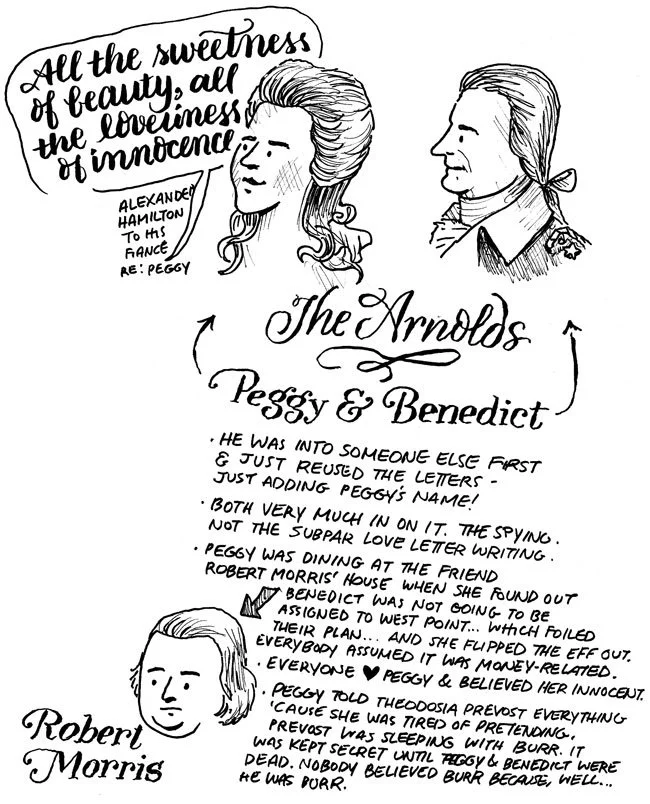 All the sweetness
of beauty, all
the loveliness
of innocence
ALEXANDER
HAMILTON
TO HIS
FIANCÉ
RE: PEGGY
The Arnolds
Peggy & Benedict
· HE WAS INTO SOMEONE ELSE FIRST
& JUST REUSED THE LETTERS -
JUST ADDING PEGGY'S NAME!
· BOTH VERY MUCH IN ON IT. THE SPYING.
NOT THE SUBPAR LOVE LETTER WRITING.
· PEGGY WAS DINING AT THE FRIEND
ROBERT MORRIS' HOUSE WHEN SHE FOUND OUT
BENEDICT WAS NOT GOING TO BE
ASSIGNED TO WEST POINT... WHICH FOILED
THEIR PLAN... AND SHE FLIPPED THE EFF OUT.
EVERYBODY ASSUMED IT WAS MONEY-RELATED.
· EVERYONE ♥ PEGGY & BELIEVED HER INNOCENT.
· PEGGY TOLD THEODOSIA PREVOST EVERYTHING
'CAUSE SHE WAS TIRED OF PRETENDING.
PREVOST WAS SLEEPING WITH BURR. IT
WAS KEPT SECRET UNTIL PEGGY & BENEDICT WERE
DEAD. NOBODY BELIEVED BURR BECAUSE, WELL...
HE WAS BURR.
Robert
Morris